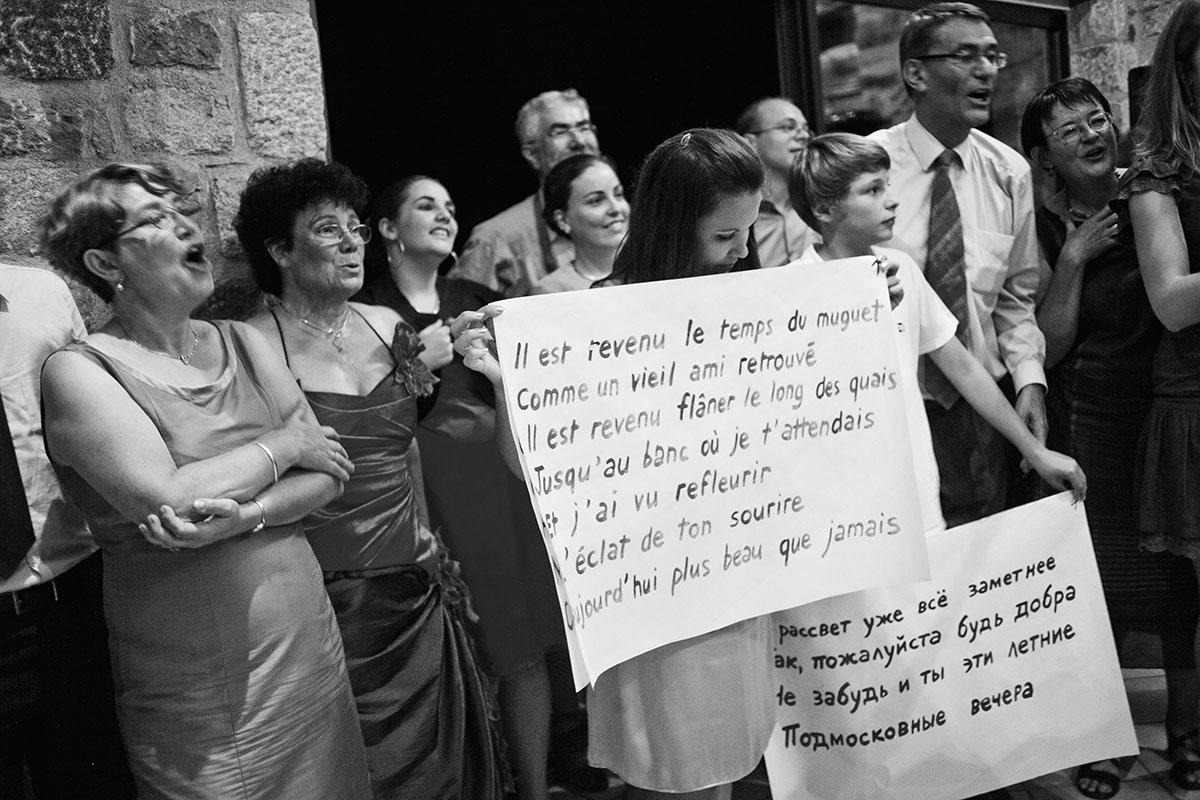 Il est revenu le temps du muguet
Comme un vieil ami retrouvé
Il est revenu flâner le long des quais
Jusqu'au banc où je t'attendais
Et j'ai vu refleurir
L'éclat de ton sourire
Aujourd'hui plus beau que jamais
рассвет уже всё заметнее
так, пожалуйста будь добра
Не забудь и ты эти летние
Подмосковные вечера